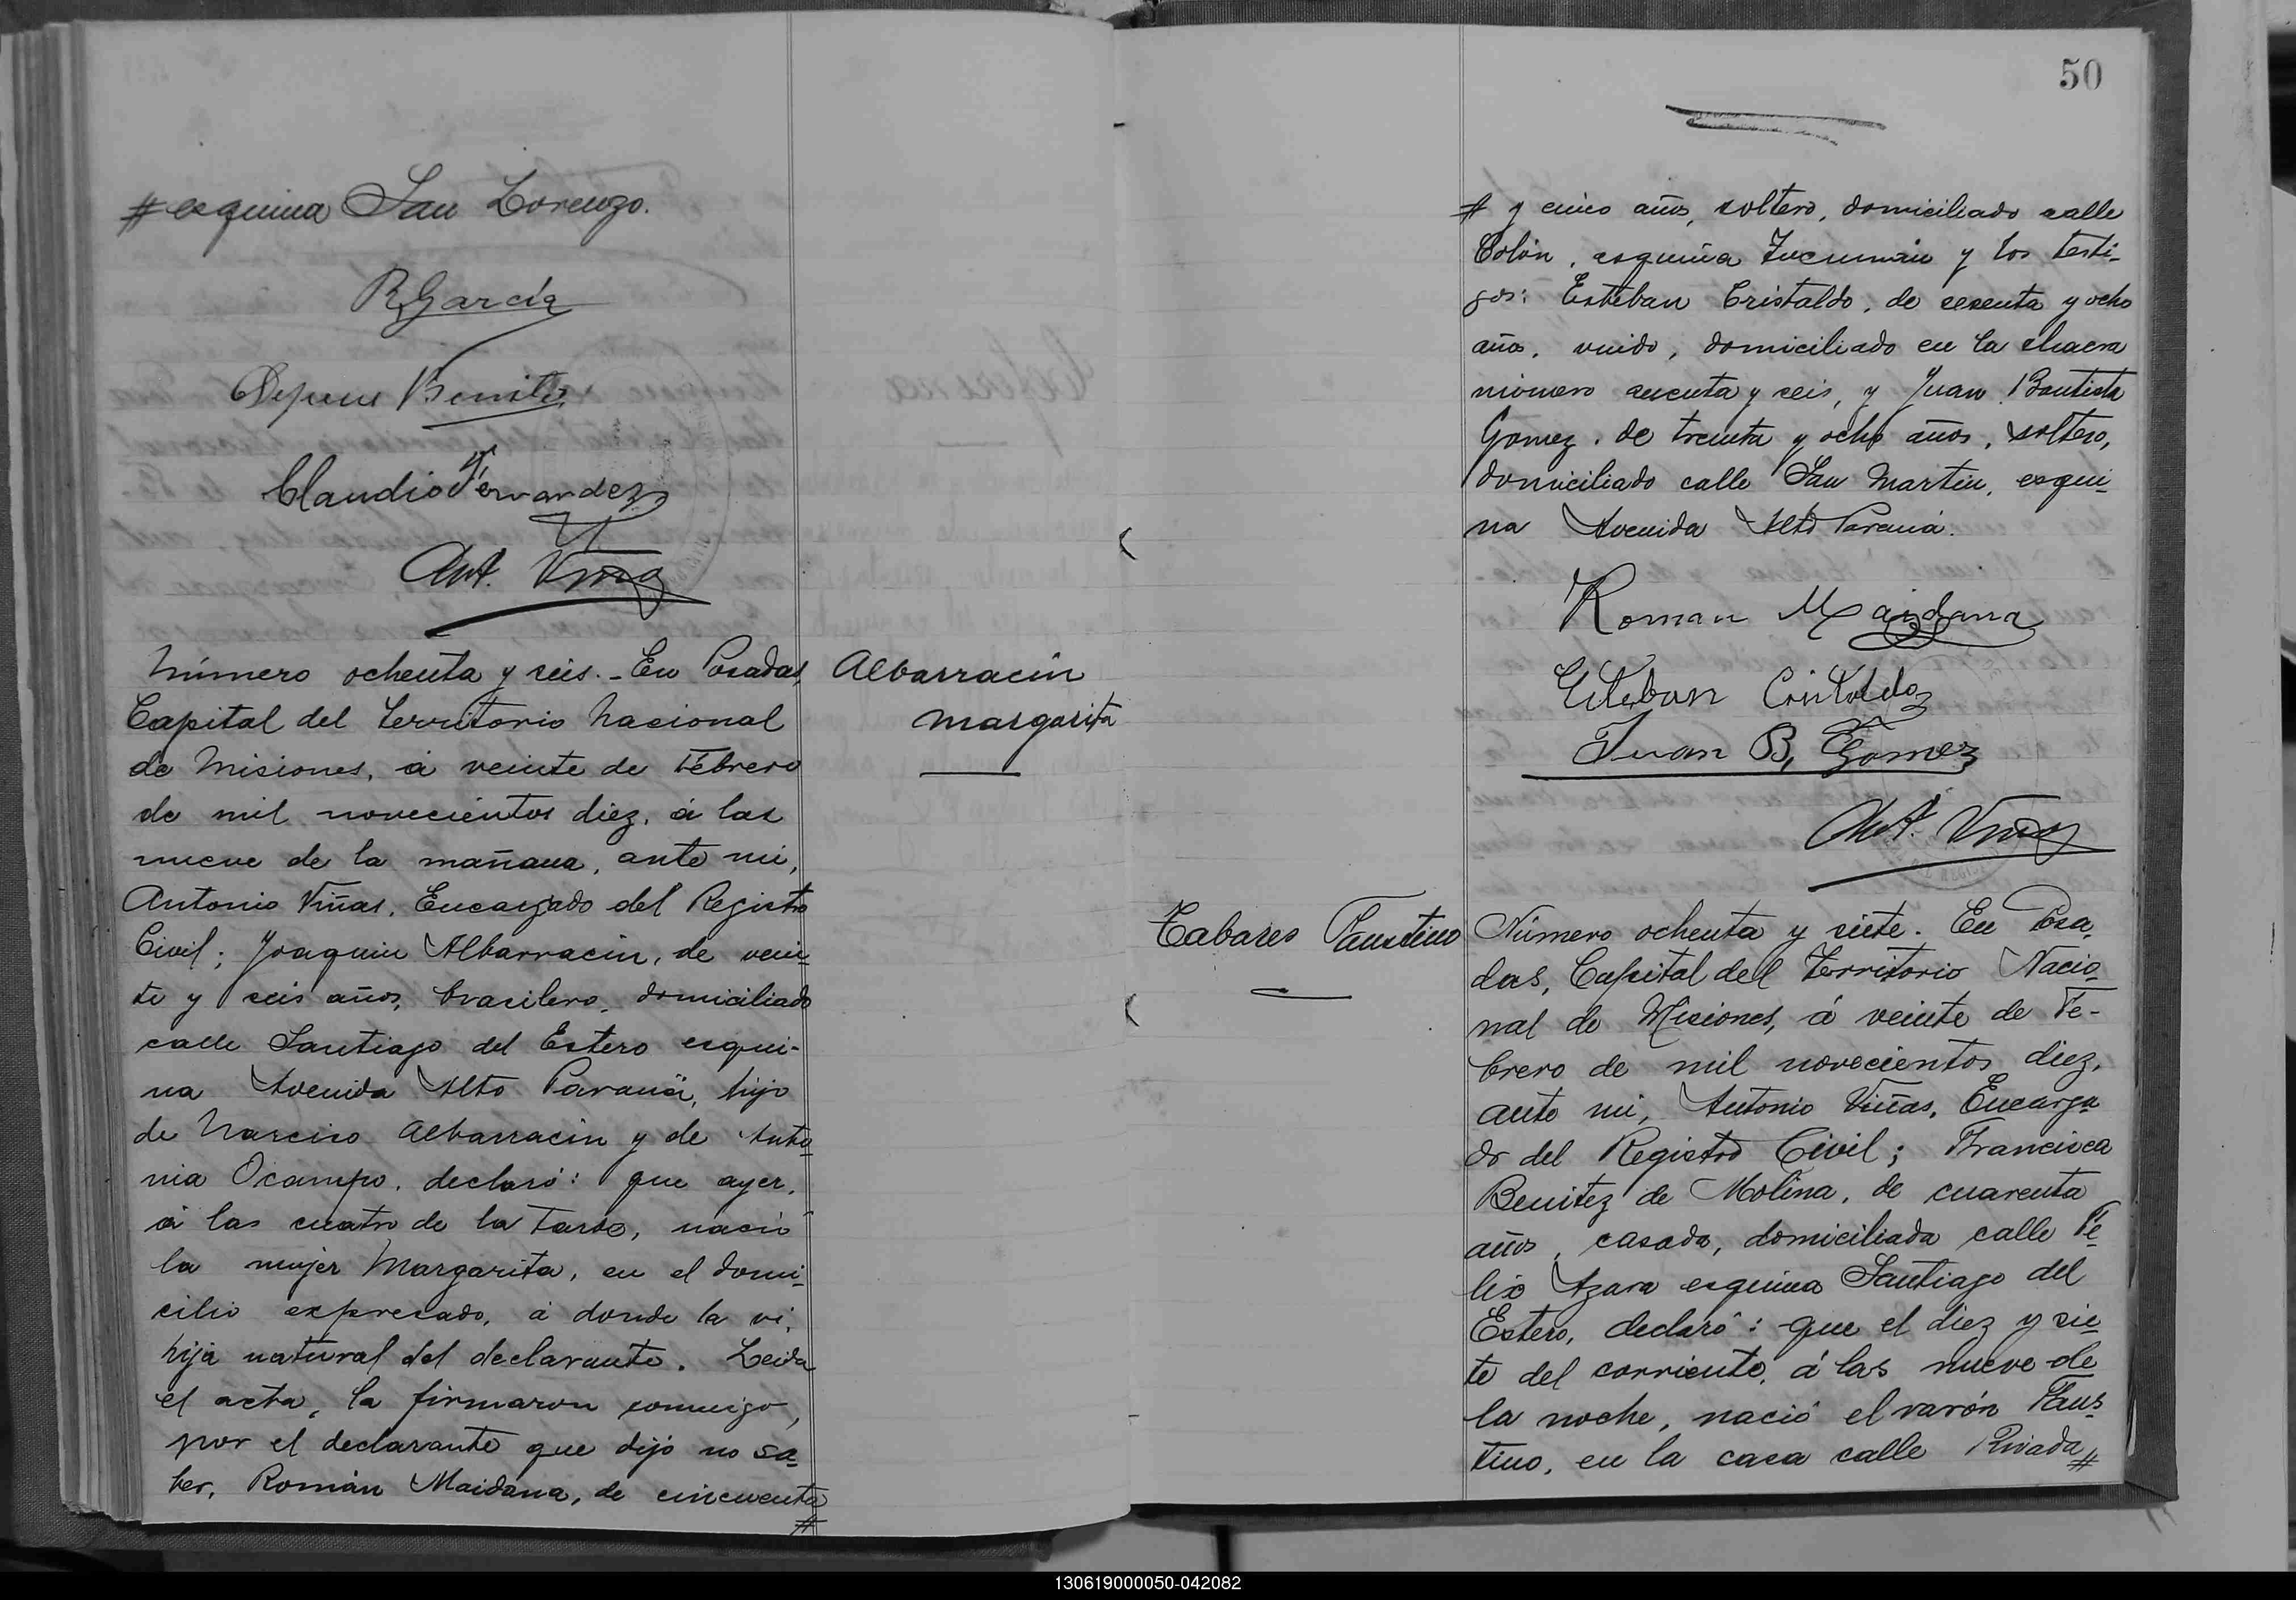 # esquina San Lorenzo.
R García
Benito
Claudio Fernandez
Ant. Viñas
Número ochenta y seis. - En Posadas,
Capital del Territorio Nacional
de Misiones, á veinte de Febrero
de mil novecientos diez, á las
nueve de la mañana, ante mi,
Antonio Viñas, Encargado del Registro
Civil; Joaquin Albarracin, de vein-
te y seis años, brasilero, domiciliado
calle Santiago del Estero esqui-
na Avenida Alto Paraná, hijo
de Narciso Albarracin y de Anto-
nia Ocampo, declaró: que ayer,
á las cuatro de la tarde, nació
la mujer Margarita, en el domi-
cilio expresado, á donde la vi,
hija natural del declarante. Leida
el acta, la firmaron conmigo,
por el declarante que dijo no sa-
ber, Román Maidana, de cincuenta
#
Albarracin
Margarita
50
# y cinco años, soltero, domiciliado calle
Colón, esquina Tucumán y los testi-
gos: Esteban Cristaldo, de sesenta y ocho
años, viudo, domiciliado en la chacra
número y seis, y Juan Bautista
Gomez, de treinta y ocho años, soltero,
domiciliado calle San Martin, esqui-
na Avenida Alto Paraná.
Roman Maidana
Esteban Cristaldo
Juan B. Gomez
Ant. Viñas
Tabares Faustino
Número ochenta y siete. En Posa-
das, Capital del Territorio Nacio-
nal de Misiones, á veinte de Fe-
brero de mil novecientos diez,
ante mi, Antonio Viñas, Encarga-
do del Registro Civil; Francisca
Benitez de Molina, de cuarenta
años, casada, domiciliada calle Fe-
lix Azara esquina Santiago del
Estero, declaró: que el diez y sie-
te del corriente, á las nueve de
la noche, nació el varón Faus-
tino, en la casa calle Rivada #
130619000050-042082